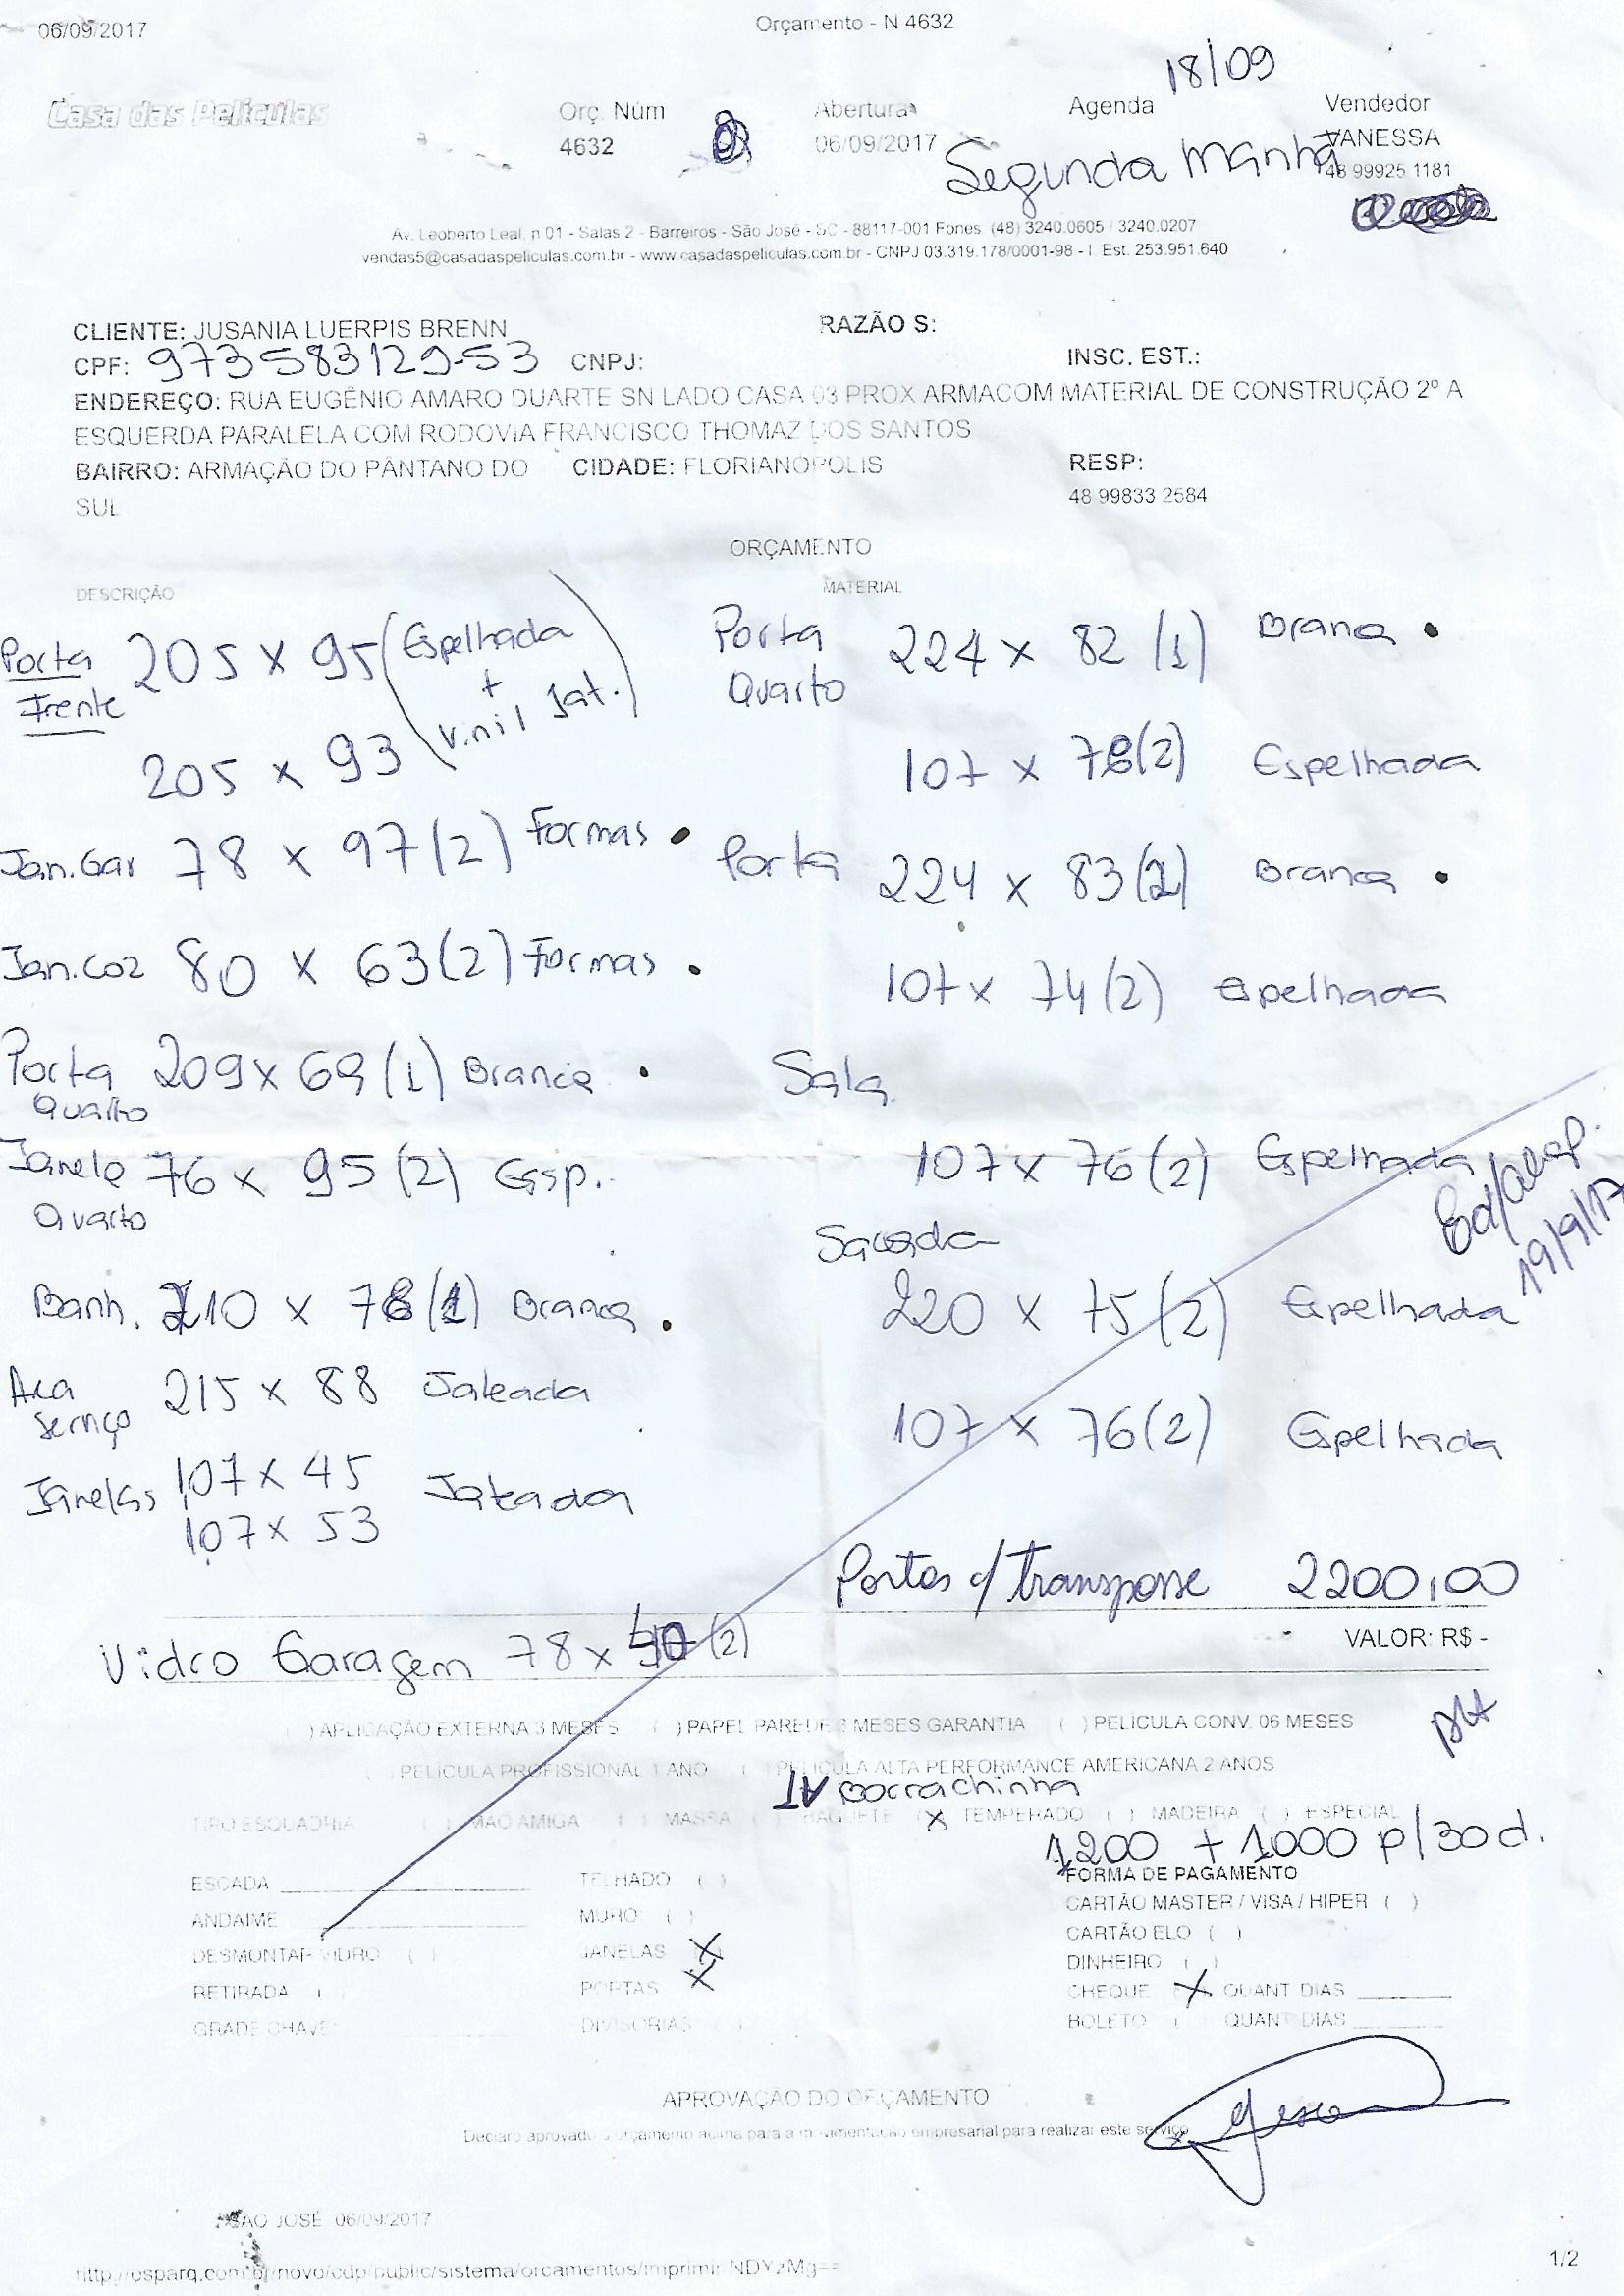 06/09/2017 Orçamento - N 4632
18/09
Casa das Películas Orç. Núm Abertura Agenda Vendedor
4632 06/09/2017 Segunda Manhã VANESSA
48 99925 1181
Av. Leoberto Leal, n 01 - Salas 2 - Barreiros - São José - SC - 88117-001 Fones (48) 3240.0605 / 3240.0207
vendas5@casadaspeliculas.com.br - www.casadaspeliculas.com.br - CNPJ 03.319.178/0001-98 - I. Est. 253.951.640
CLIENTE: JUSANIA LUERPIS BRENN RAZÃO S:
CPF: 973583129-53 CNPJ: INSC. EST.:
ENDEREÇO: RUA EUGÊNIO AMARO DUARTE SN LADO CASA 03 PROX ARMACOM MATERIAL DE CONSTRUÇÃO 2º A
ESQUERDA PARALELA COM RODOVIA FRANCISCO THOMAZ DOS SANTOS
BAIRRO: ARMAÇÃO DO PÂNTANO DO CIDADE: FLORIANÓPOLIS RESP:
SUL 48 99833 2584
ORÇAMENTO
DESCRIÇÃO MATERIAL
Porta Frente 205 x 95 (Espelhada + Vinil Jat.)
205 x 93
Jan. Gar 78 x 97 (2) Formas •
Jan. Coz 80 x 63 (2) Formas •
Porta Quarto 209 x 69 (1) Branca •
Janela Quarto 76 x 95 (2) Esp.
Banh. 210 x 78 (1) Branca •
Area Serviço 215 x 88 Jateada
Janelas 107 x 45 Jateada
107 x 53
Porta Quarto 224 x 82 (1) Branca •
107 x 76 (2) Espelhada
Porta 224 x 83 (2) Branca •
107 x 74 (2) Espelhada
Sala
107 x 76 (2) Espelhada
19/9/17
Sacada
220 x 75 (2) Espelhada
107 x 76 (2) Espelhada
Portas c/ transpasse 2200,00
VALOR: R$ -
Vidro Garagem 78 x (2)
( ) APLICAÇÃO EXTERNA 3 MESES ( ) PAPEL PAREDE 3 MESES GARANTIA ( ) PELÍCULA CONV. 06 MESES
( ) PELÍCULA PROFISSIONAL 1 ANO ( ) PELÍCULA ALTA PERFORMANCE AMERICANA 2 ANOS
Borrachinha
TIPO ESQUADRIA ( ) MÃO AMIGA ( ) MASSA ( ) BAGUETE (X) TEMPERADO ( ) MADEIRA ( ) ESPECIAL
1200 + 1000 p/ 30 d.
ESCADA TELHADO ( ) FORMA DE PAGAMENTO
CARTÃO MASTER / VISA / HIPER ( )
ANDAIME MURO ( ) CARTÃO ELO ( )
DESMONTAR VIDRO ( ) JANELAS X DINHEIRO ( )
RETIRADA ( ) PORTAS X CHEQUE X QUANT DIAS
GRADE CHAVE DIVISORIAS ( ) BOLETO ( ) QUANT DIAS
APROVAÇÃO DO ORÇAMENTO
Declaro aprovado o orçamento acima para a movimentação empresarial para realizar este serviço
SÃO JOSÉ 06/09/2017
http://osparq.com.br/novo/cdp/public/sistema/orcamentos/imprimir/NDYzMg== 1/2